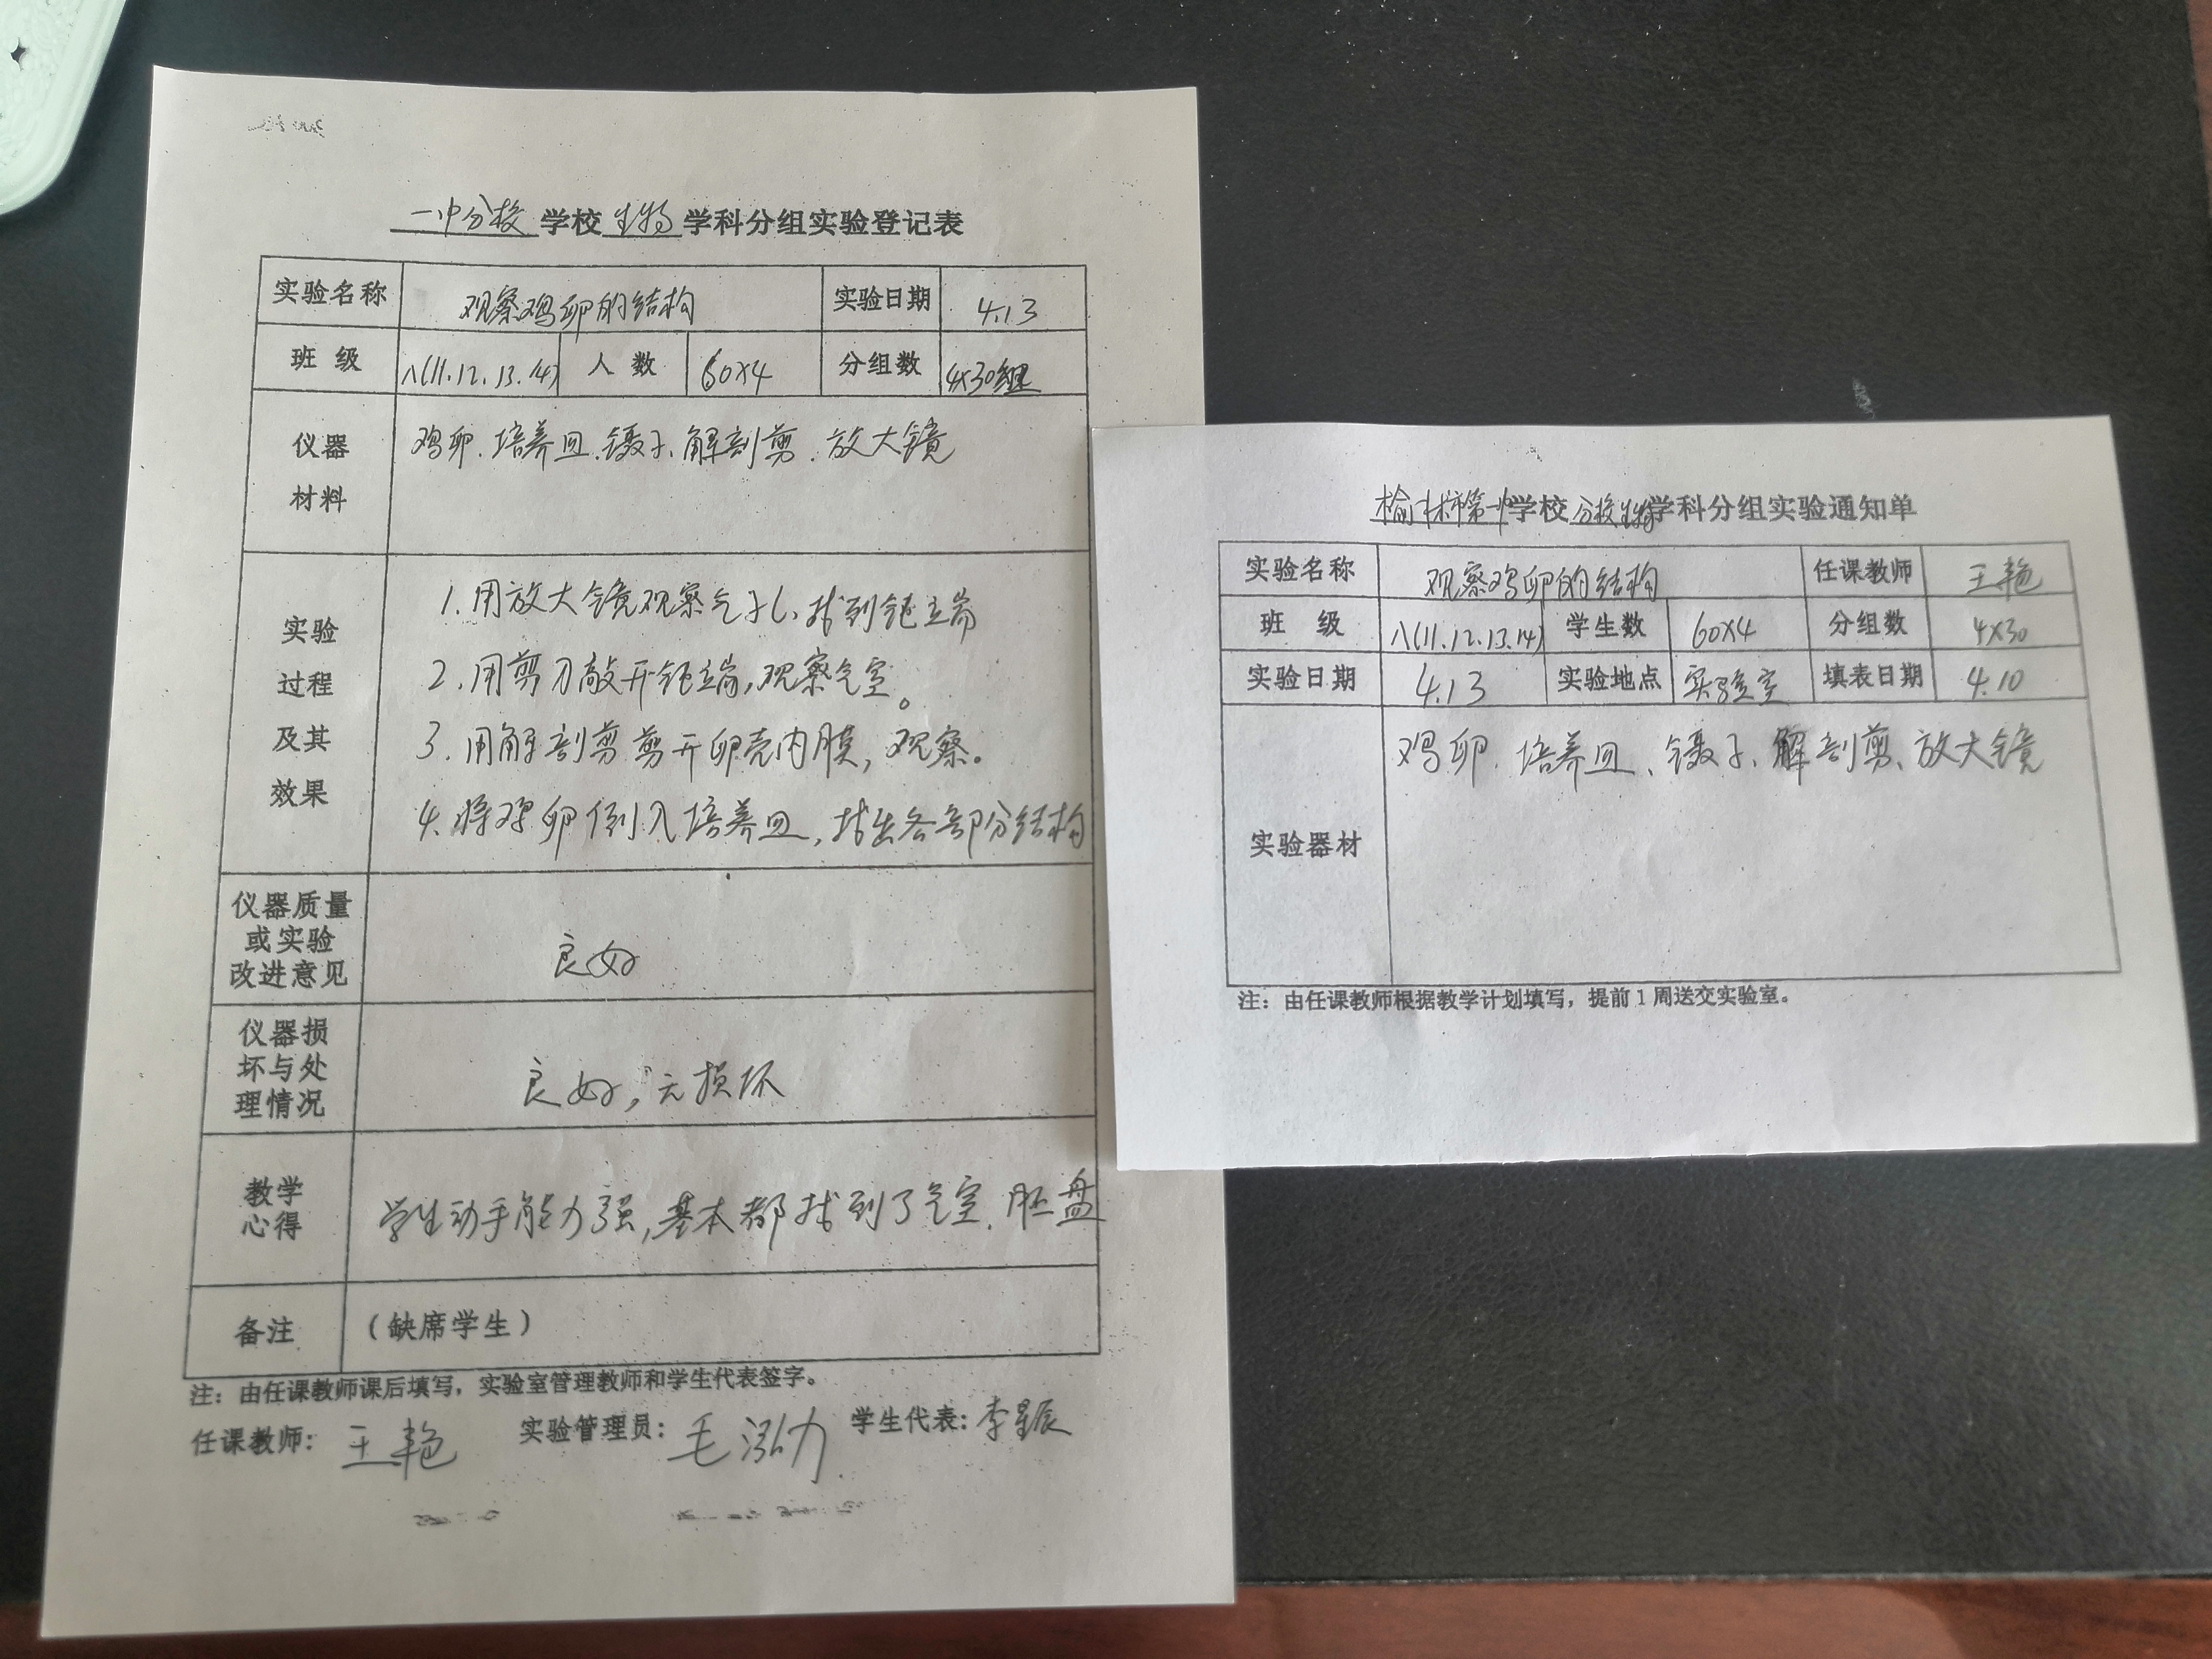 一中分校 学校 生物 学科分组实验登记表
实验名称 观察鸡卵的结构 实验日期 4.13
班 级 八(11.12.13.14) 人 数 60×4 分组数 4×30组
仪器 材料 鸡卵.培养皿.镊子、解剖剪.放大镜
实验 过程 及其 效果
1.用放大镜观察气孔,找到钝端
2.用剪刀敲开钝端,观察气室。
3.用解剖剪剪开卵壳内膜,观察。
4.将鸡卵倒入培养皿,找出各部分结构
仪器质量 或实验 改进意见 良好
仪器损 坏与处 理情况 良好,无损坏
教学 心得 学生动手能力强,基本都找到了气室.胚盘
备注 (缺席学生)
注:由任课教师课后填写,实验室管理教师和学生代表签字。
任课教师: 王艳 实验管理员: 毛泓力 学生代表: 李星辰
榆林市第一中学校 分校生物学科分组实验通知单
实验名称 观察鸡卵的结构 任课教师 王艳
班 级 八(11.12.13.14) 学生数 60×4 分组数 4×30
实验日期 4.13 实验地点 实验室 填表日期 4.10
实验器材 鸡卵.培养皿、镊子、解剖剪、放大镜
注:由任课教师根据教学计划填写,提前1周送交实验室。